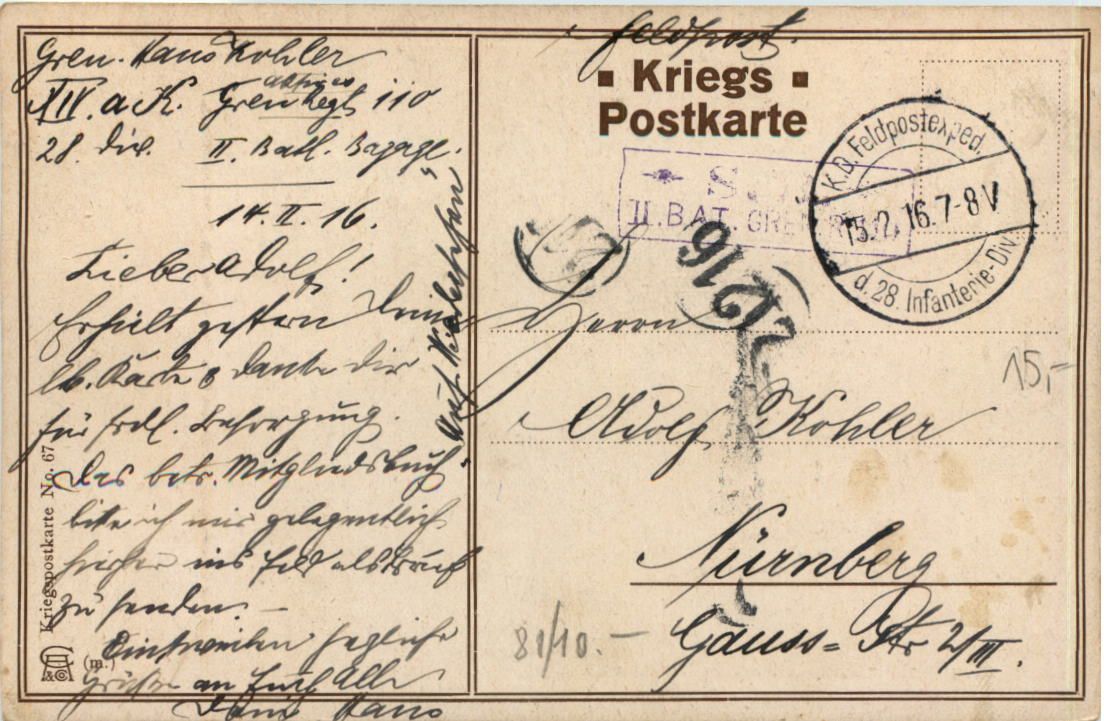 Gren. Hans Kohler
XIV. a. K. Gren Regt 110
28. Div. II. Batl. Bagage.
14. II. 16.
Lieber Adolf!
Erhielt gestern Deine
lb. Karte & danke Dir
für frdl. Besorgung.
Das betr. Mitgliedsbuch
bitte ich mir gelegentlich
hierher ins Feld als Brief
zu senden. –
Einstweilen herzliche
Grüße an Euch Alle
Dein Hans
Auf Wiedersehen
Kriegspostkarte No. 67
(m.)
A
& Co
Feldpost.
Kriegs
Postkarte
S.
II. BAT. GREN
K.D. Feldpostexped.
15.2.16. 7-8 V
d. 28. Infanterie-Div.
216
Herrn
Adolf Kohler
Nürnberg
Gauss=Str 2/III.
15,-
81/10.-